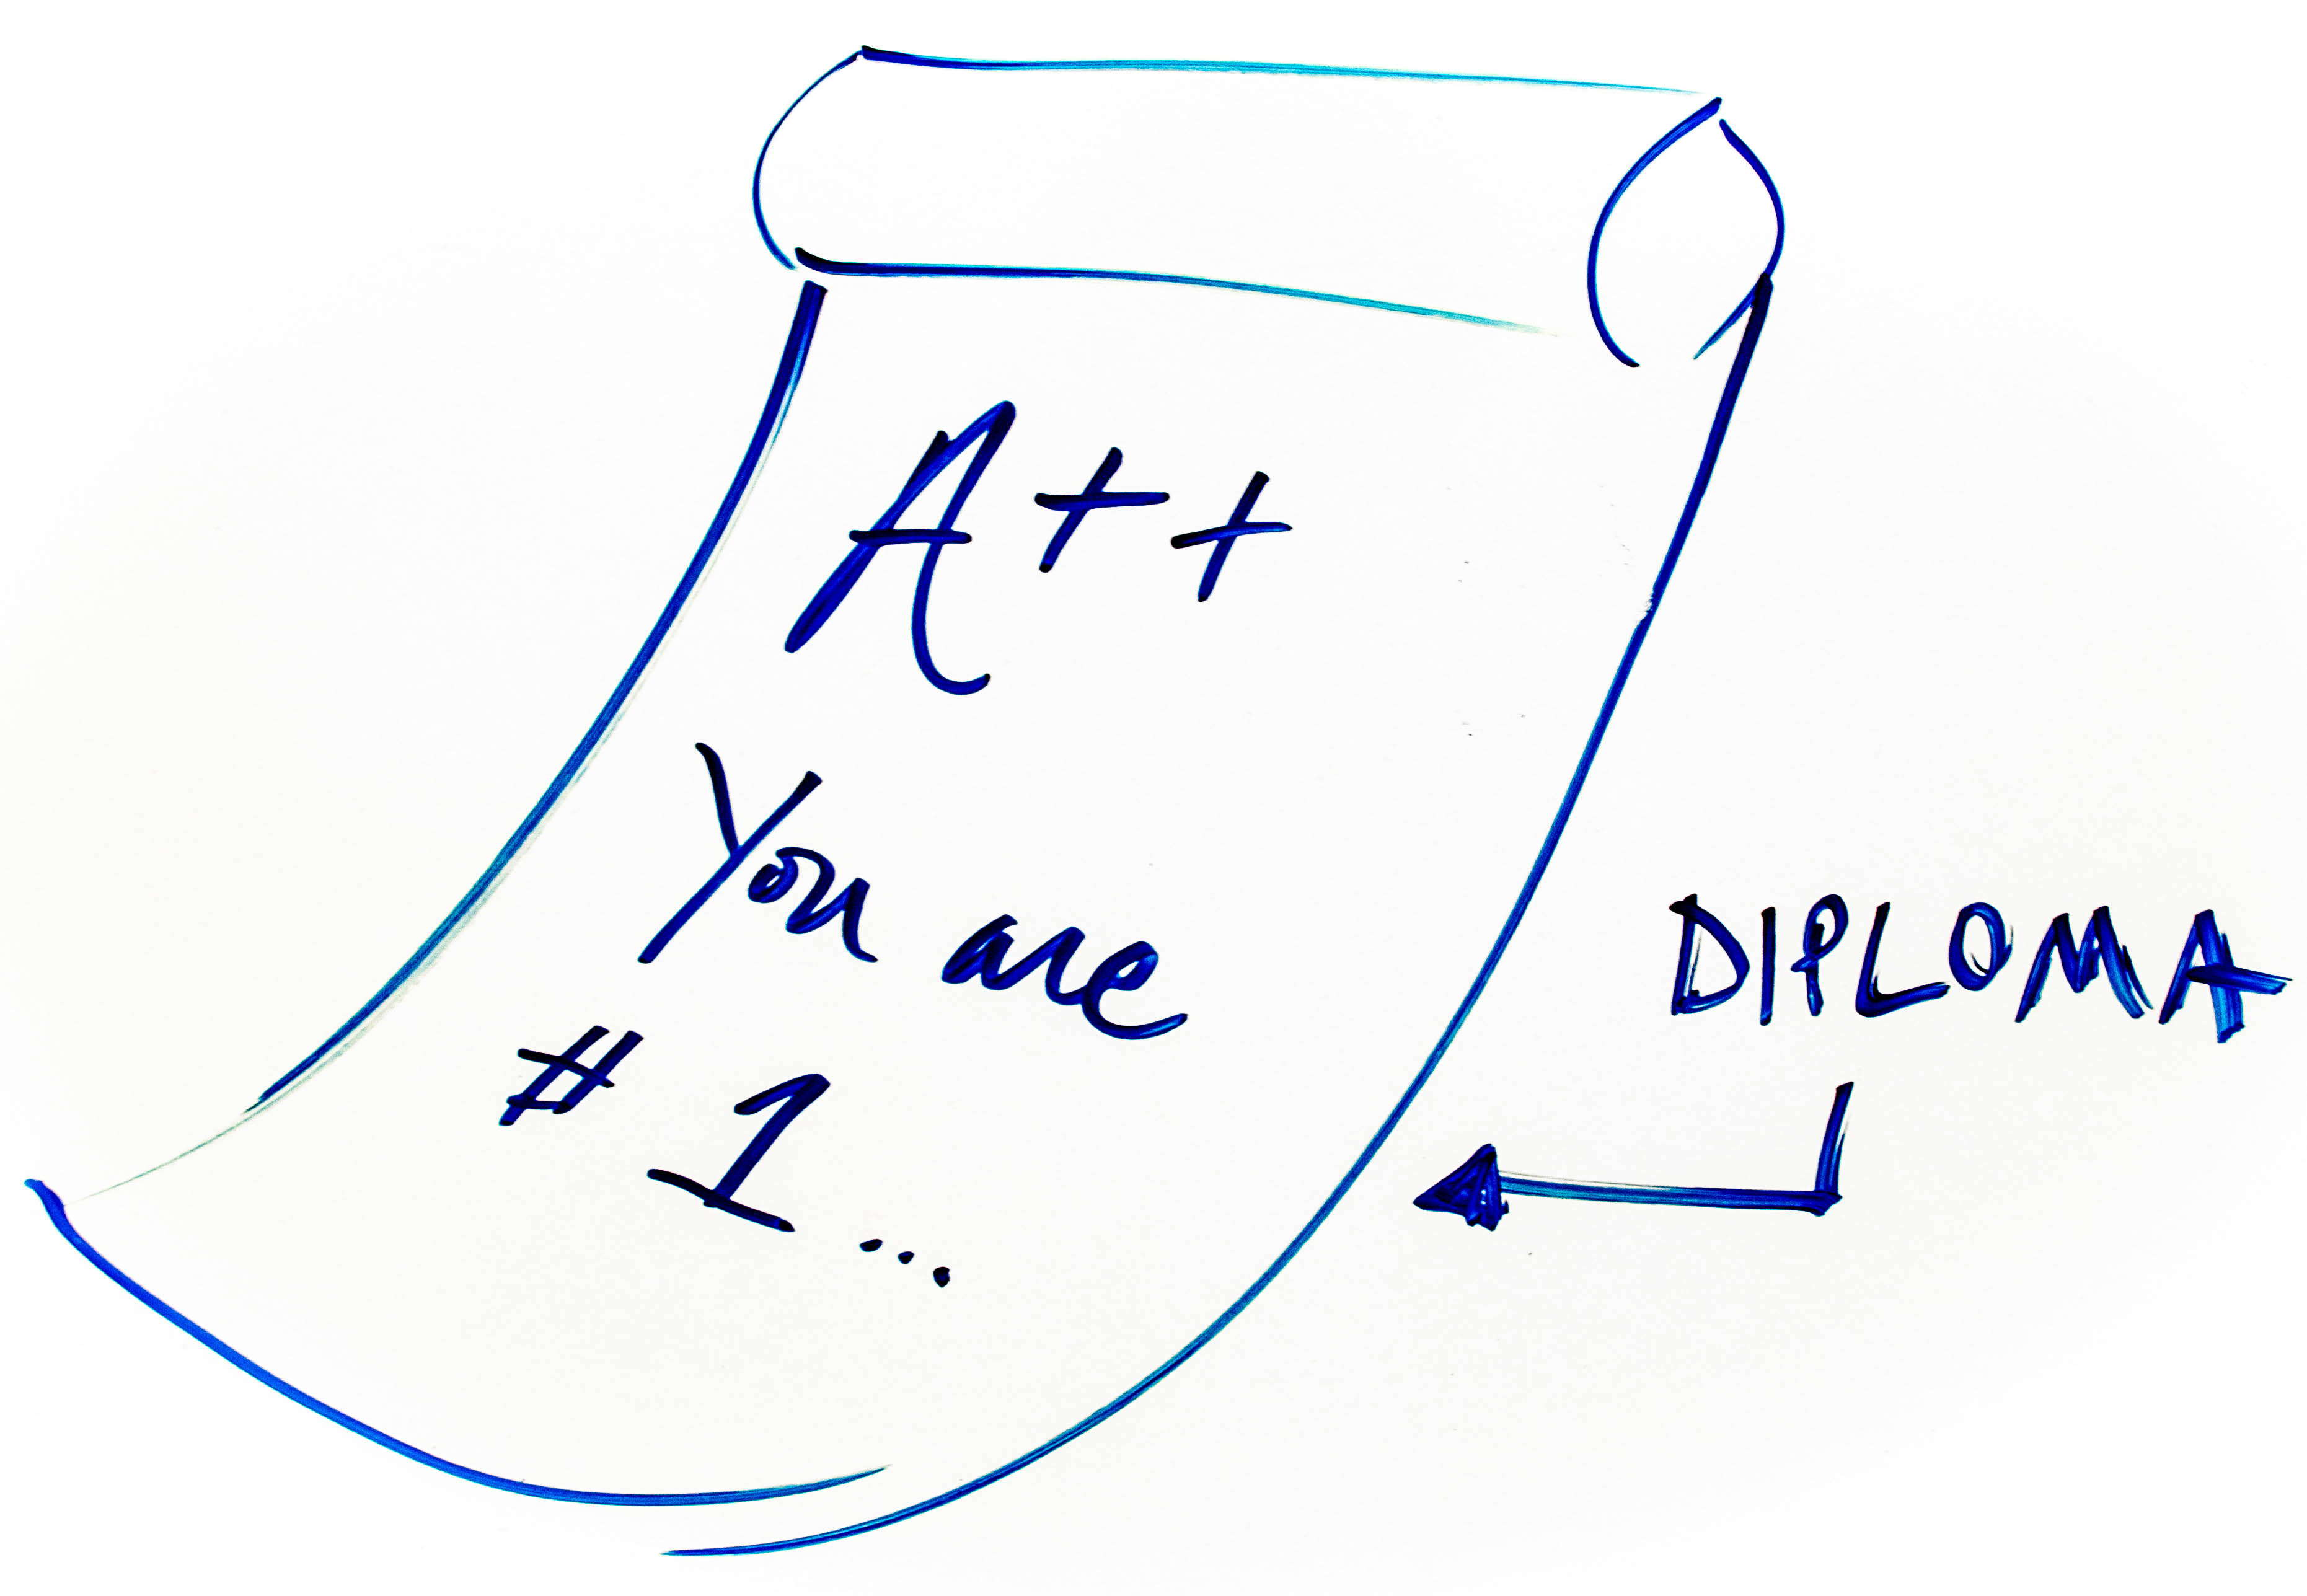 A++
You are
# 1...
DIPLOMA